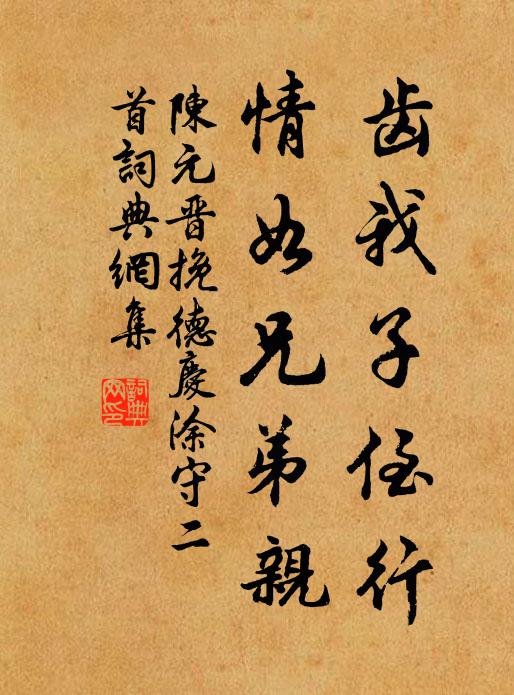 齿我子侄行
情如兄弟親
陳元晋挽德慶涂守二
首詞典網集
詞典網印